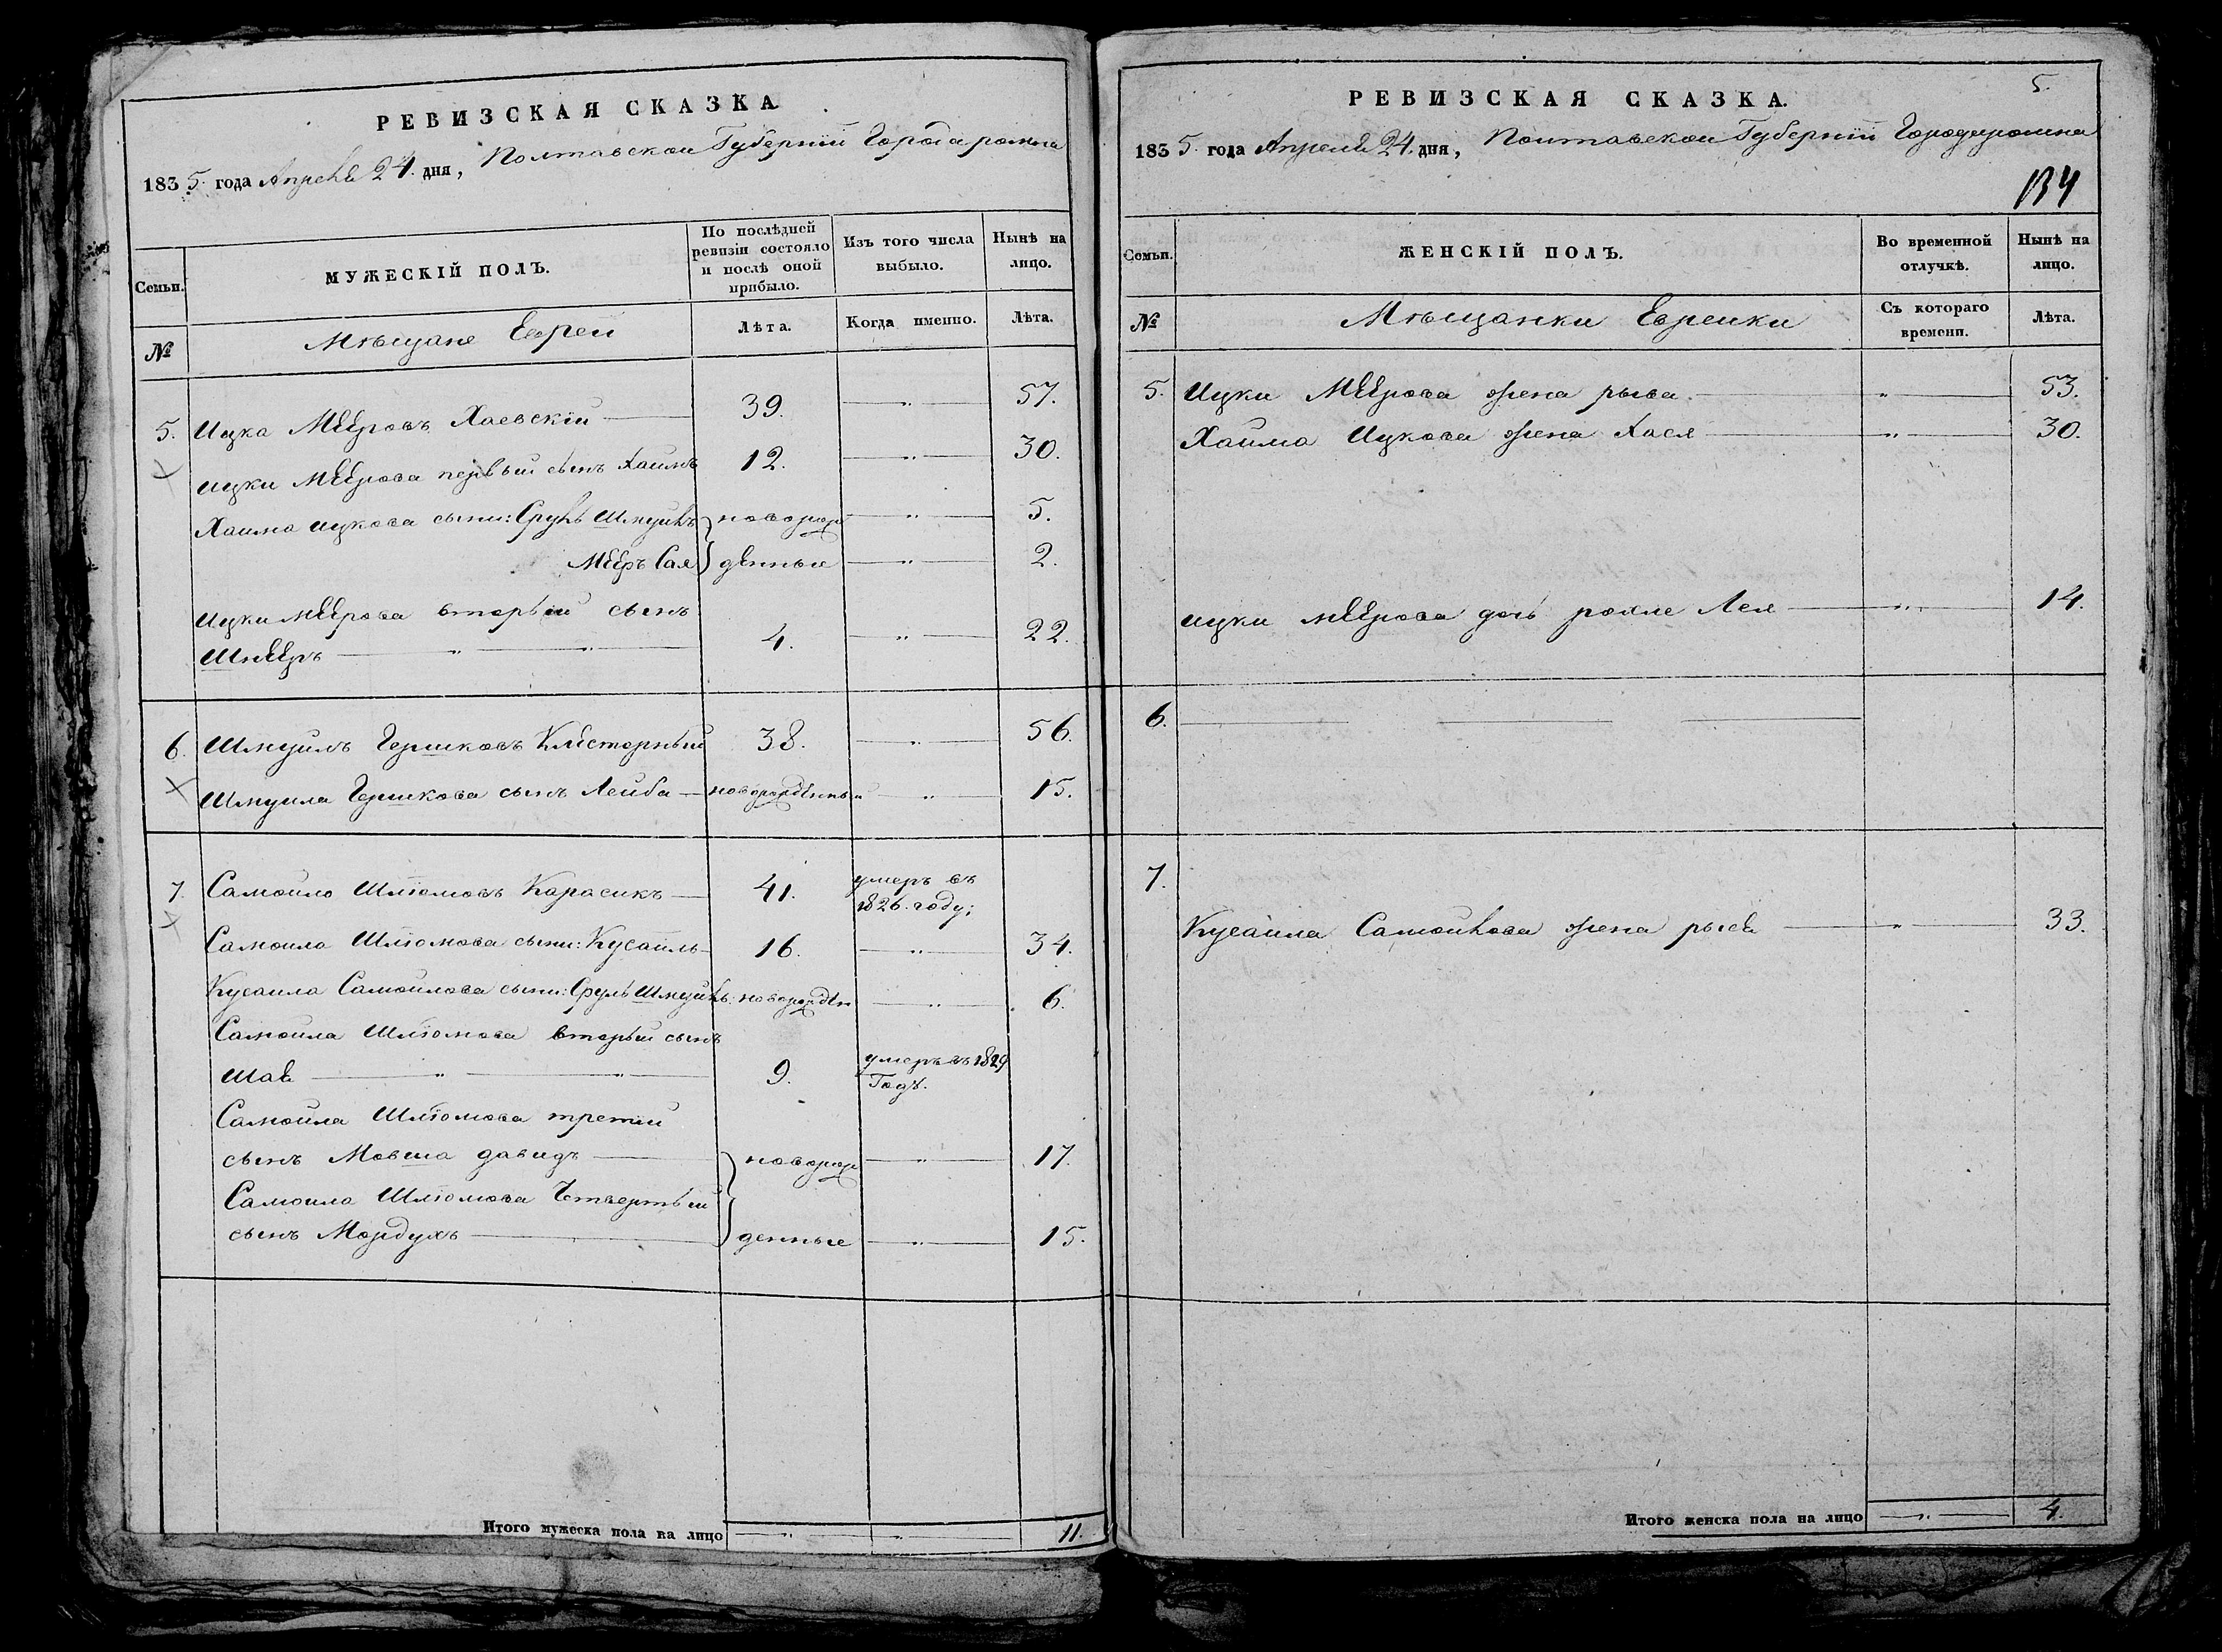 РЕВИЗСКАЯ СКАЗКА.
1835. года Апреля 24. дня, Полтавской Губернии Города ромна
Семьи.
МУЖЕСКІЙ ПОЛЪ.
По послѣдней ревизіи состояло и послѣ оной прибыло.
Изъ того числа выбыло.
Нынѣ на лицо.
№
Мѣщане Евреи
Лѣта.
Когда именно.
Лѣта.
5. Ицка Мееровъ Хаевскій 39. — „ — 57.
Ицки Меерова первый сынъ Хаимъ 12. — „ — 30.
Хаима ицкова сыни: Сруль Шмуйль новорож — „ — 5.
Мееръ Сая денные — „ — 2.
Ицки меерова вторый сынъ
Шнееръ — „ — „ — 4. — „ — 22.
6. Шмуилъ Гершковъ Клестерный 38. — „ — 56.
Шмуила Гершкова сынъ Лейба — новорожденный — „ — 15.
7. Самойло Шліомовъ Карасикъ — 41. умеръ въ
1826. году;
Самоила Шліомова сыни: Кусаиль 16. — „ — 34.
Кусаила Самойлова сыни: Сруль Шмуйль: новорожден — „ — 6.
Самоила Шліомова вторый сынъ
Шае — „ — „ — 9. умеръ въ 1829
Годѣ.
Самойла Шліомова третій
сынъ Мовша давидъ — новорож — „ — 17.
Самоила Шліомова Четвертый
сынъ Мордухъ — денные — „ — 15.
Итого мужеска пола на лицо — „ — „ — 11.
5.
РЕВИЗСКАЯ СКАЗКА.
1835. года Апреля 24. дня, Полтавской Губернии Города ромна
134
Семьи.
ЖЕНСКІЙ ПОЛЪ.
Во временной отлучкѣ.
Нынѣ на лицо.
№
Мѣщанки Еврейки
Съ котораго времени.
Лѣта.
5. Ицки Меерова жена рыва. — „ — 53.
Хаима Ицкова жена Хася — „ — 30.
ицки меерова дочь рохле Лея — „ — 14.
6. — — —
7.
Кусаила Самойлова жена рыся — „ — 33.
Итого женска пола на лицо — „ — 4.